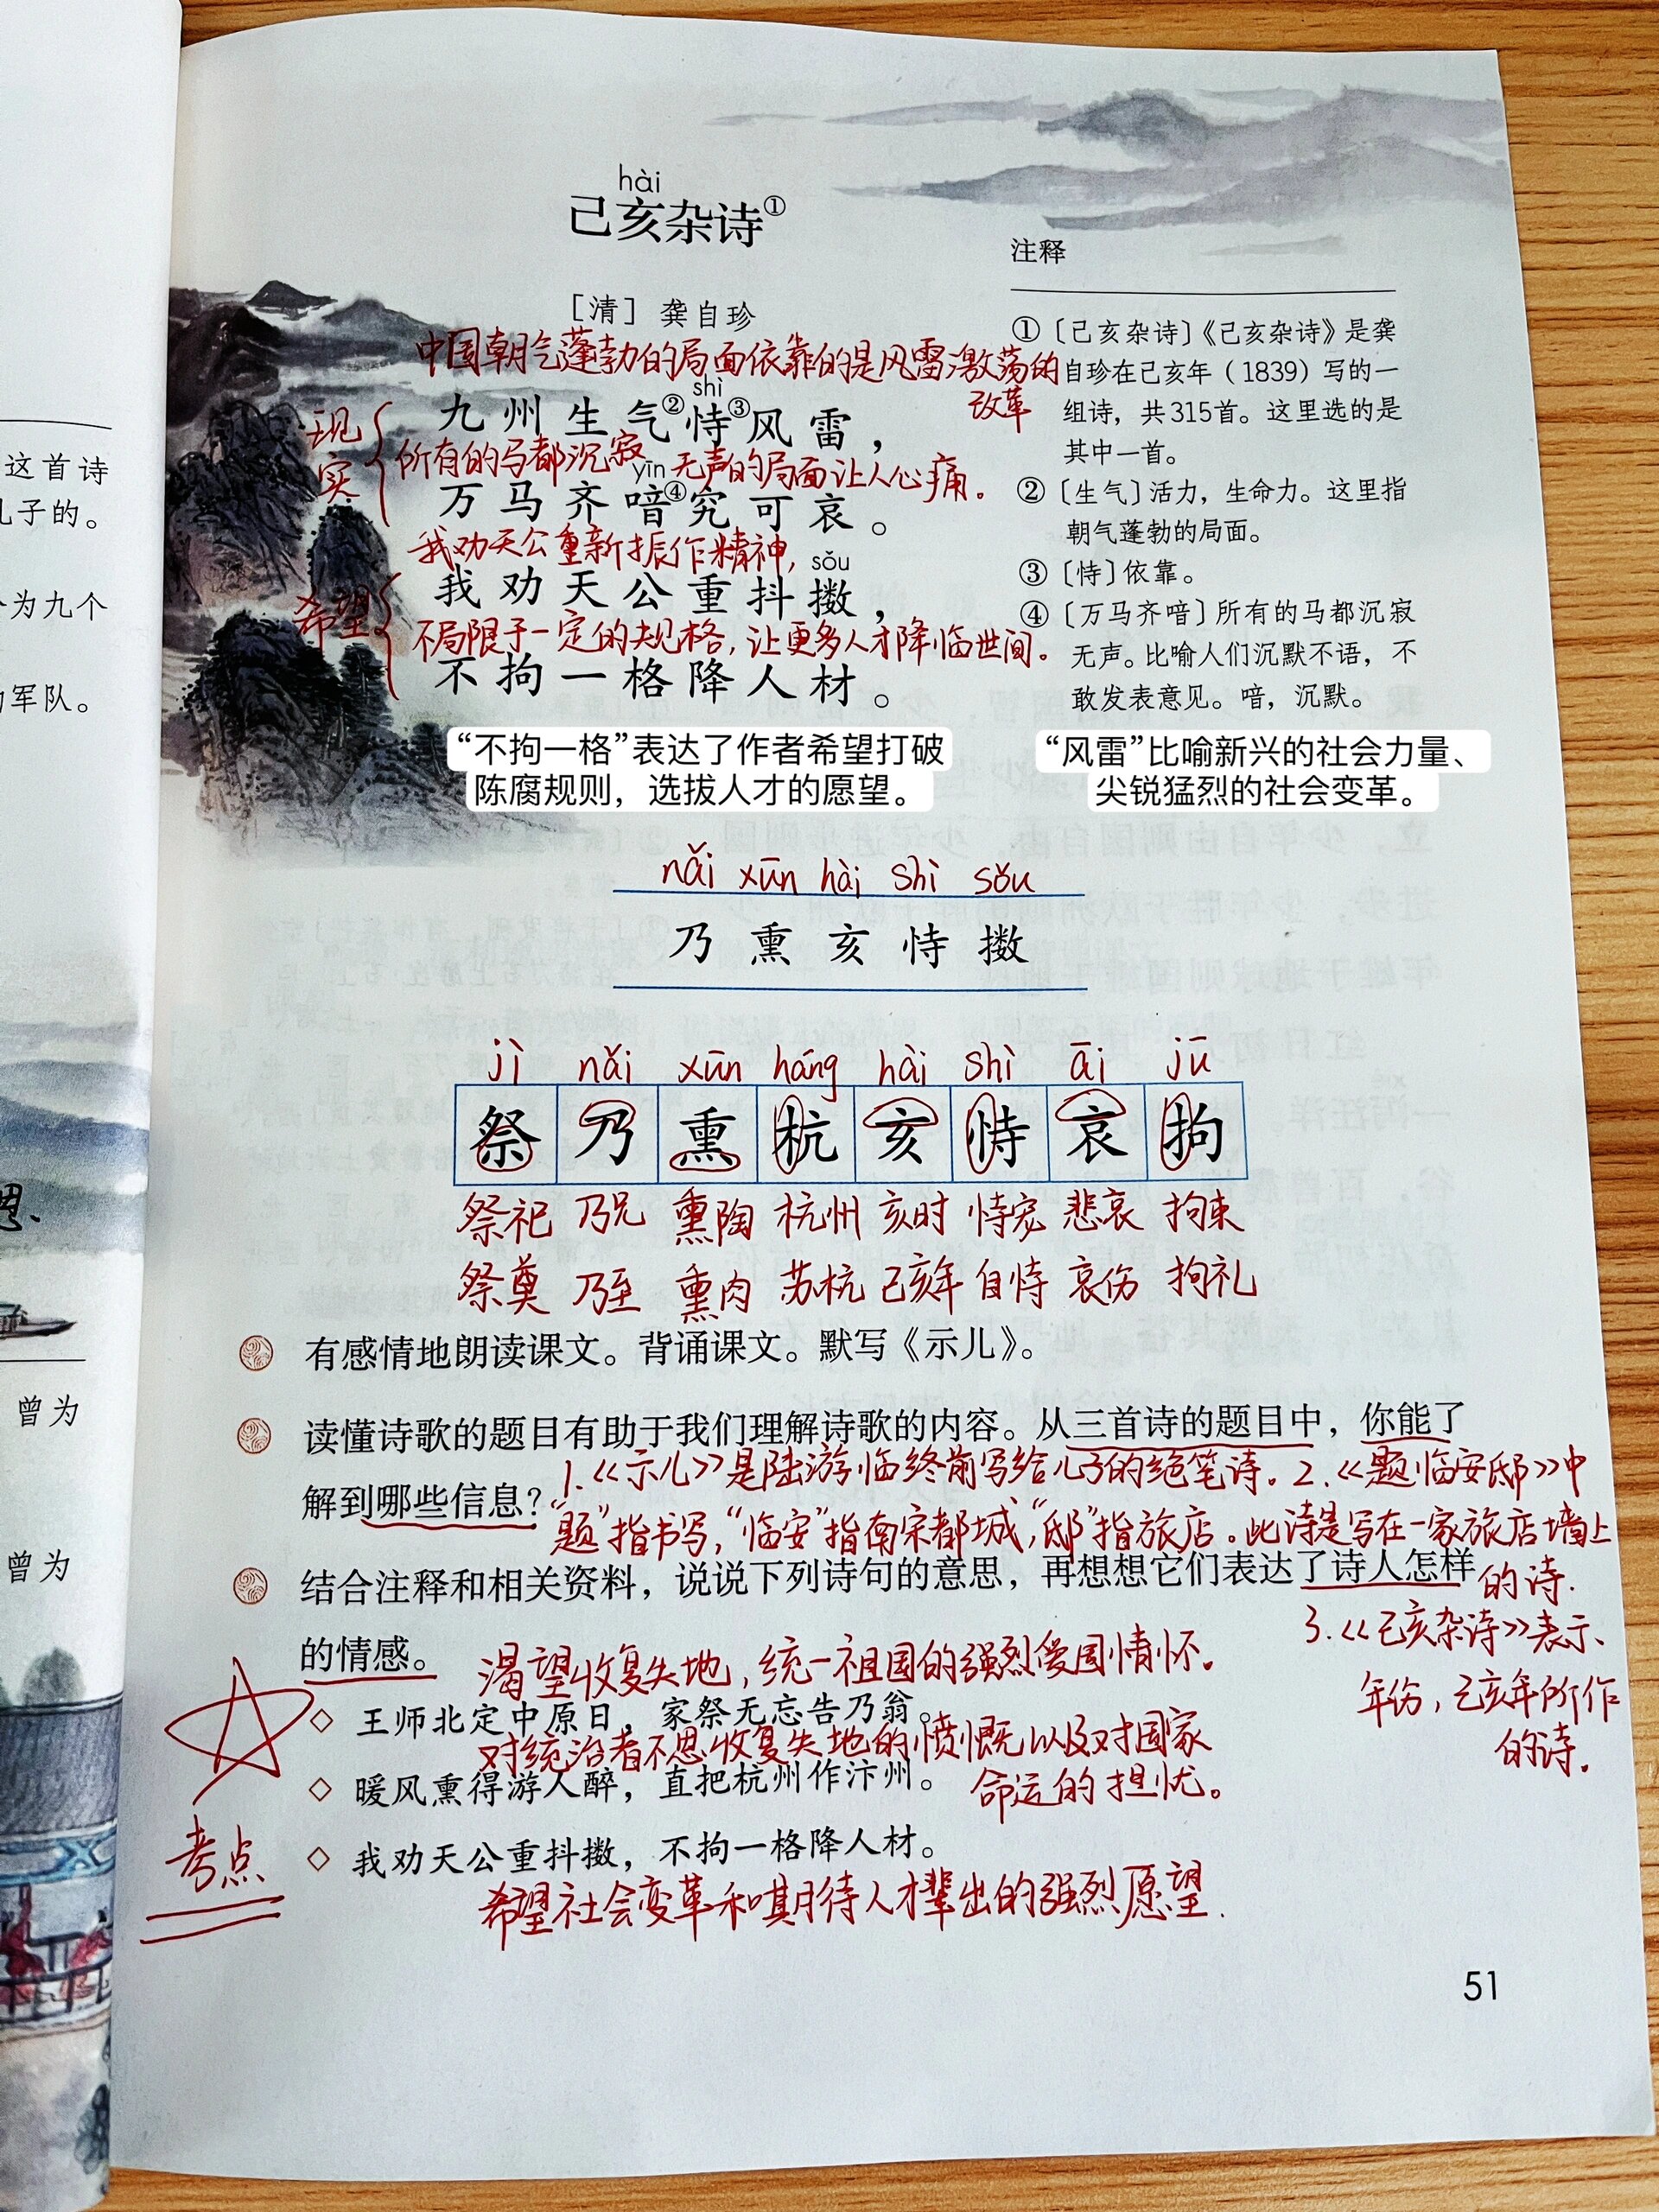 hài
己亥杂诗①
[清] 龚自珍
中国朝气蓬勃的局面依靠的是风雷激荡的
改革
shì
九州生气②恃③风雷，
现实
所有的马都沉寂无声的局面让人心痛。
yīn
万马齐喑④究可哀。
我劝天公重新振作精神，
sǒu
我劝天公重抖擞，
希望
不局限于一定的规格，让更多人才降临世间。
不拘一格降人材。
注释
①〔己亥杂诗〕《己亥杂诗》是龚
自珍在己亥年（1839）写的一
组诗，共315首。这里选的是
其中一首。
②〔生气〕活力，生命力。这里指
朝气蓬勃的局面。
③〔恃〕依靠。
④〔万马齐喑〕所有的马都沉寂
无声。比喻人们沉默不语，不
敢发表意见。喑，沉默。
“不拘一格”表达了作者希望打破
陈腐规则，选拔人才的愿望。
“风雷”比喻新兴的社会力量、
尖锐猛烈的社会变革。
nǎi xūn hài shì sǒu
乃 熏 亥 恃 擞
jì nǎi xūn háng hài shì āi jū
祭 乃 熏 杭 亥 恃 哀 拘
祭祀 乃兄 熏陶 杭州 亥时 恃宠 悲哀 拘束
祭奠 乃至 熏肉 苏杭 己亥年 自恃 哀伤 拘礼
有感情地朗读课文。背诵课文。默写《示儿》。
读懂诗歌的题目有助于我们理解诗歌的内容。从三首诗的题目中，你能了
解到哪些信息？
1.《示儿》是陆游临终前写给儿子的绝笔诗。2.《题临安邸》中
“题”指书写，“临安”指南宋都城，“邸”指旅店。此诗是写在一家旅店墙上
的诗.
3.《己亥杂诗》表示、
年份，己亥年所作
的诗.
结合注释和相关资料，说说下列诗句的意思，再想想它们表达了诗人怎样
的情感。
渴望收复失地，统一祖国的强烈爱国情怀。
◇ 王师北定中原日，家祭无忘告乃翁。
对统治者不思收复失地的愤慨以及对国家
◇ 暖风熏得游人醉，直把杭州作汴州。
命运的担忧。
考点
◇ 我劝天公重抖擞，不拘一格降人材。
希望社会变革和期待人才辈出的强烈愿望.
51
这首诗
儿子的。
分为九个
军队。
思、
曾为
曾为